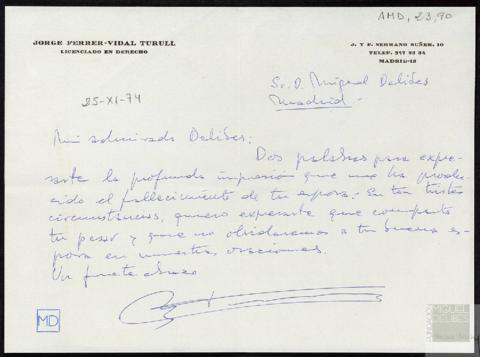 AMD, 23, 90
JORGE FERRER-VIDAL TURULL
LICENCIADO EN DERECHO
J. Y F. SERRANO SUÑER, 10
TELEF. 247 23 84
MADRID-15
Sr. D. Miguel Delibes
Madrid.-
25-XI-74
Mi admirado Delibes:
Dos palabras para expre-
sarte la profunda impresión que me ha produ-
cido el fallecimiento de tu esposa. En tan tristes
circunstancias, quiero expresarte que comparto
tu pesar y que no olvidaremos a tu buena es-
posa en nuestras oraciones.
Un fuerte abrazo
MD
FUNDACIÓN
MIGUEL
DELIBES